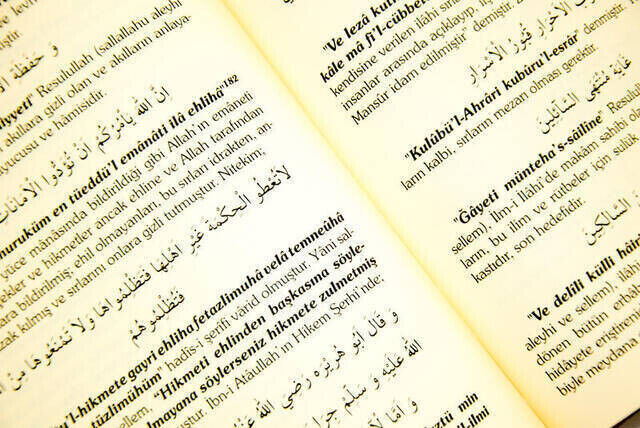 وَ حَفَظَةُ
lliyyeti" Resulullah (sallallahu aleyhi
akıllara gizli olan ve akılların anlaya-
uyucusu ve hâmisidir.
اِنَّ اللهَ يَأْمُرُكُمْ اَنْ تُؤَدُّوا الْاَمَانَاتِ
murukûm en tüeddü'l emânâti ilâ ehlihâ"182
yüce mânâsında bildirildiği gibi Allah'ın emâneti
çekler ve hikmetler ancak ehline ve Allah tarafından
lara bildirilmiş; ehil olmayanları, bu sırları idrakten, an-
zak kılmış ve sırlarını onlara gizli tutmuştur. Nitekim;
لَا تُعْطُوا الْحِكْمَةَ غَيْرَ اَهْلِهَا فَتَظْلِمُوهَا وَلَا تَمْنَعُوهَا مِنْ
فَتَظْلِمُوهُمْ
û'l-hikmete gayri ehliha fetazlimuhâ velâ temneûhâ
tüzlimûhüm" hadis-i şerifi vârid olmuştur. Yâni sal-
sellem, "Hikmeti ehlinden başkasına söyle-
lmayana söylerseniz hikmete zulmetmiş
ştur. İbn-i Atâullah ın Hikem Şerhi'nde;
وَ قَالَ اَبُو هُرَيْرَةَ رَضِيَ اللهُ
اللهُ عَلَيْهِ وَ سَلَّمَ
öztü min
l-ilmi
"Ve lezâ
kâle mâ fi'l-cübbe
kendisine verilen ilâhi
insanlar arasında açıklayıp,
Mansûr idam edilmiştir" demiştir.
قُبُورُ الْاَسْرَارِ
"Kulûbü'l-Ahrâri kubûrü'l-esrâr"
ların kalbi, sırların mezarı olması gerektir.
غَايَةُ مُنْتَهَى السَّائِلِينَ
"Ğâyeti münteha's-sâilîne"
sellem), İlm-i İlâhi'de makam sahibi
ların, bu ilim ve rütbeler için sülûk
kastıdır, son hedefidir.
السَّالِكِينَ
"Ve delili külli
aleyhi ve sellem),
dönen bütün
hidâyete
biyle meydana